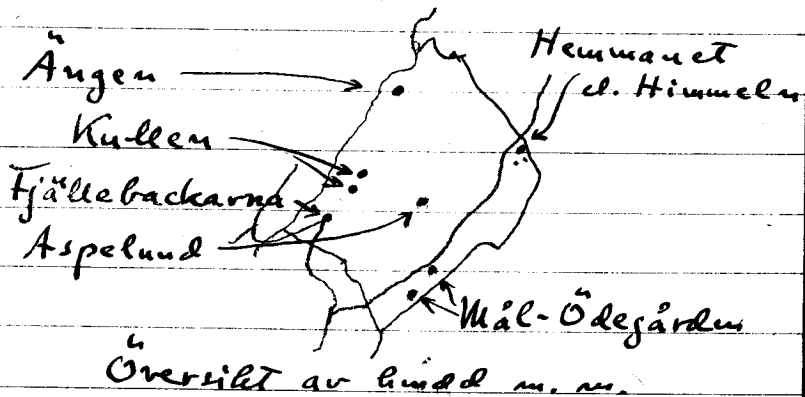 Ängen
Hemmanet
el. Himmeln
Kullen
Fjällebackarna
Aspelund
Mål-Ödegården
Översikt av m. m.